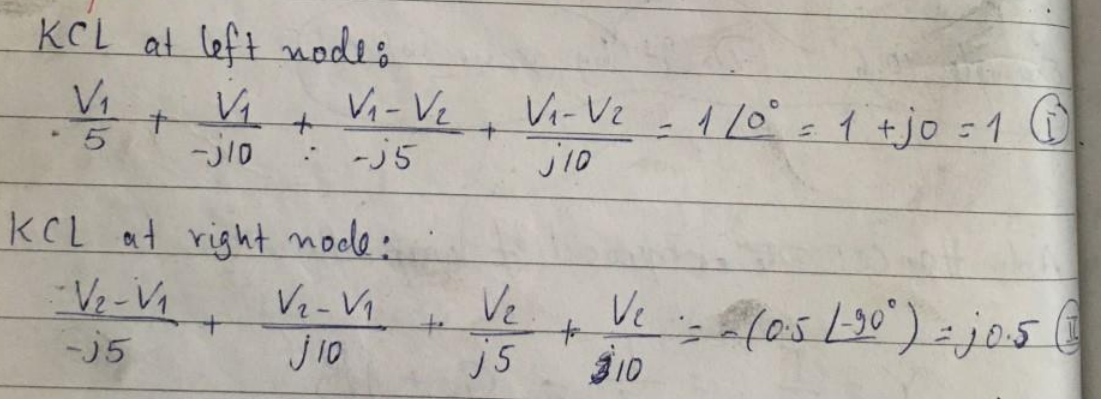 KCL at left node:
V1/5 + V1/-j10 + V1-V2/-j5 + V1-V2/j10 = 1∠0° = 1 + j0 = 1 (I)
KCL at right node:
V2-V1/-j5 + V2-V1/j10 + V2/j5 + V2/10 = -(0.5∠-90°) = j0.5 (II)